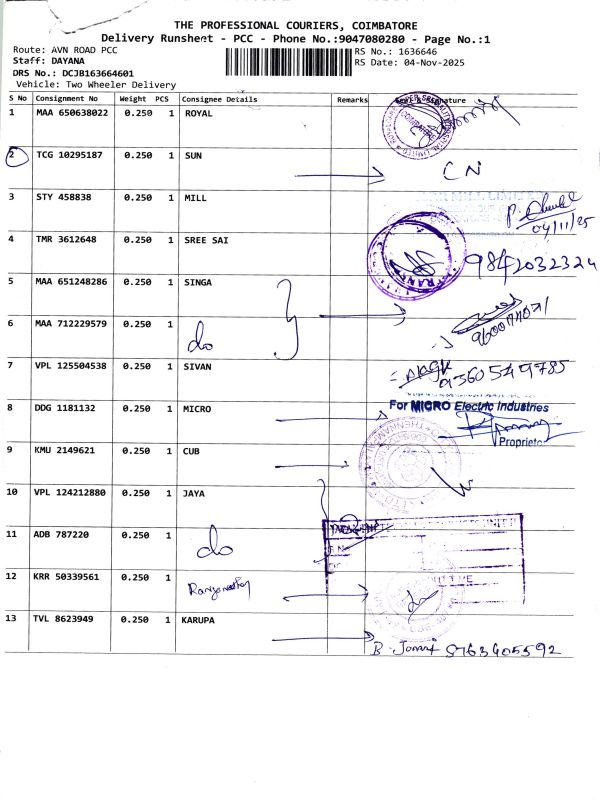 THE PROFESSIONAL COURIERS, COIMBATORE
Delivery Runsheet - PCC - Phone No.:9047080280 - Page No.:1
Route: AVN ROAD PCC
RS No.: 1636646
Staff: DAYANA
RS Date: 04-Nov-2025
DRS No.: DCJB163664601
Vehicle: Two Wheeler Delivery
S No Consignment No Weight PCS Consignee Details Remarks Seal & Signature
1 MAA 650638022 0.250 1 ROYAL
2 TCG 10295187 0.250 1 SUN
CN
3 STY 458838 0.250 1 MILL
MILL LIMITED
04/11/25
4 TMR 3612648 0.250 1 SREE SAI
9842032324
5 MAA 651248286 0.250 1 SINGA
6 MAA 712229579 0.250 1 do
7 VPL 125504538 0.250 1 SIVAN
9360549785
8 DDG 1181132 0.250 1 MICRO
For MICRO Electric Industries
Proprietor
9 KMU 2149621 0.250 1 CUB
10 VPL 124212880 0.250 1 JAYA
11 ADB 787220 0.250 1 do
12 KRR 50339561 0.250 1
13 TVL 8623949 0.250 1 KARUPA
8763405592